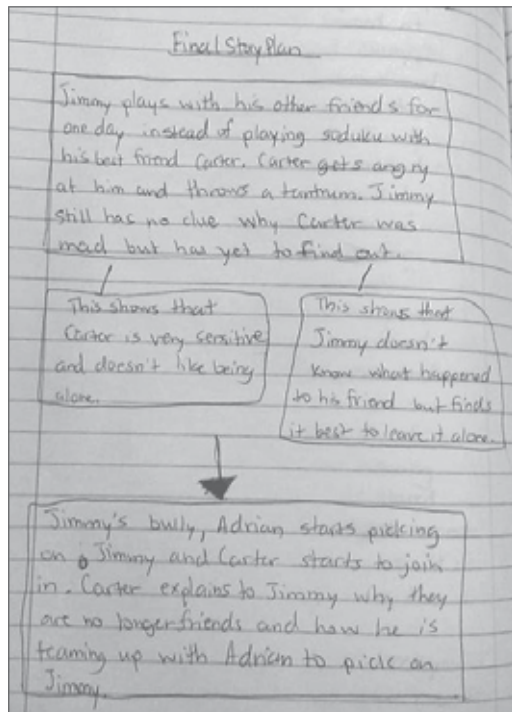 Final Story Plan
Jimmy plays with his other friends for
one day instead of playing soduku with
his best friend Carter. Carter gets angry
at him and throws a tantrum. Jimmy
still has no clue why Carter was
mad but has yet to find out.
This shows that
Carter is very sensitive
and doesn't like being
alone.
This shows that
Jimmy doesn't
know what happened
to his friend but finds
it best to leave it alone.
Jimmy's bully, Adrian starts picking
on Jimmy and Carter starts to join
in. Carter explains to Jimmy why they
are no longer friends and how he is
teaming up with Adrian to pick on
Jimmy.